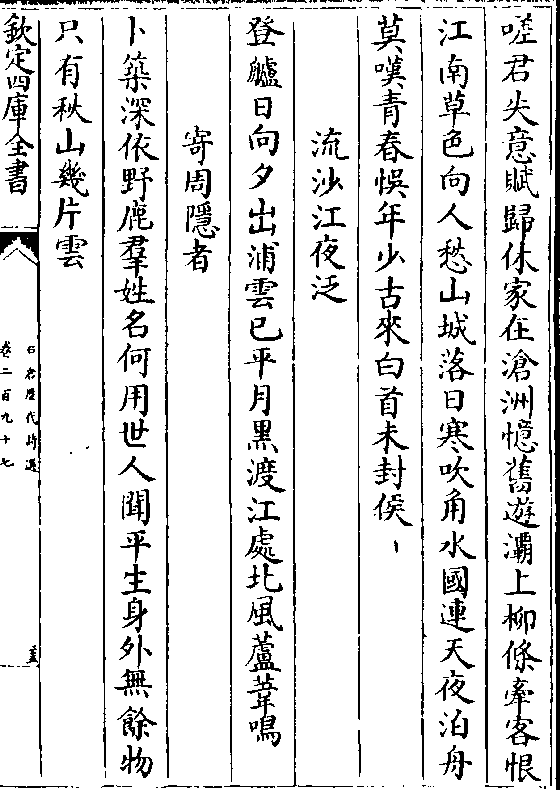 嗟君失意賦歸休家在滄洲憶舊遊灞上柳條牽客恨
江南草色向人愁山城落日寒吹角水國連天夜泊舟
莫嘆青春悞年少古來白首未封侯
流沙江夜泛
登艫日向夕出浦雲已平月黑渡江處北風蘆葦鳴
寄周隱者
卜築深依野鹿羣姓名何用世人聞平生身外無餘物
只有秋山幾片雲
欽定四庫全書
石倉歷代詩選
卷二百九十七